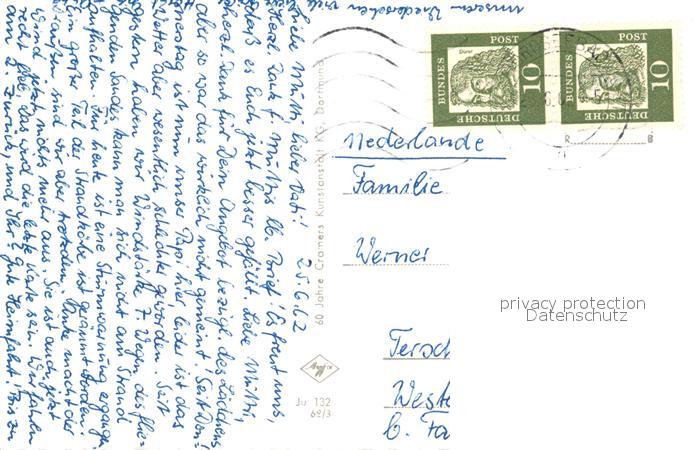 unserem
25.6.62
Liebe Mutti, lieber Vati!
Vielen Dank f. Muttis lb. Brief! Es freut uns,
daß es Euch jetzt besser gefällt. Liebe Mutti,
Dank für Dein Angebot bezügl. des
aber so war das wirklich nicht gemeint! Seit Don-
nerstag ist nun unser Papi hier, leider ist das
Wetter aber wesentlich schlechter geworden. Seit
gestern haben wir Windstärke 7. Wegen des flie-
genden Sandes kann man sich nicht am Strand
aufhalten. Für heute ist eine Sturmwarnung ergangen
Ein großer Teil der Strandkörbe ist geräumt worden.
draußen sind wir aber trotzdem. macht der
Wind jetzt nichts mehr aus. Sie ist auch jetzt
recht lieb, das wird die letzte Karte sein. Wir fahren
am 2. zurück, und Ihr? Gute Heimfahrt! Bis zu
60 Jahre Cramers Kunstanstalt KG, Dortmund
Agfa
Ju 132
62/3
DEUTSCHE BUNDESPOST
Dürer
10
DEUTSCHE BUNDESPOST
10
Niederlande
Familie
Werner
Tersch
West
b. Fa
privacy protection
Datenschutz